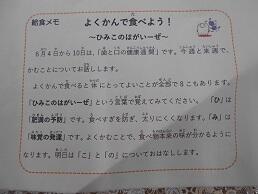 給食メモ
よくかんで食べよう！
～ひみこのはがいーぜ～
6月4日から10日は、「歯と口の健康週間」です。今週と来週で、
かむことについてお話しします。
よくかんで食べると体にとってよいことが全部で8こもあります。
「ひみこのはがいーぜ」という言葉で覚えてみてください。「ひ」は
「肥満の予防」です。食べすぎを防ぎ、太りにくくなります。「み」は
「味覚の発達」です。よくかむことで、食べ物本来の味が分かるように
なります。明日は「こ」と「の」についておはなしします。